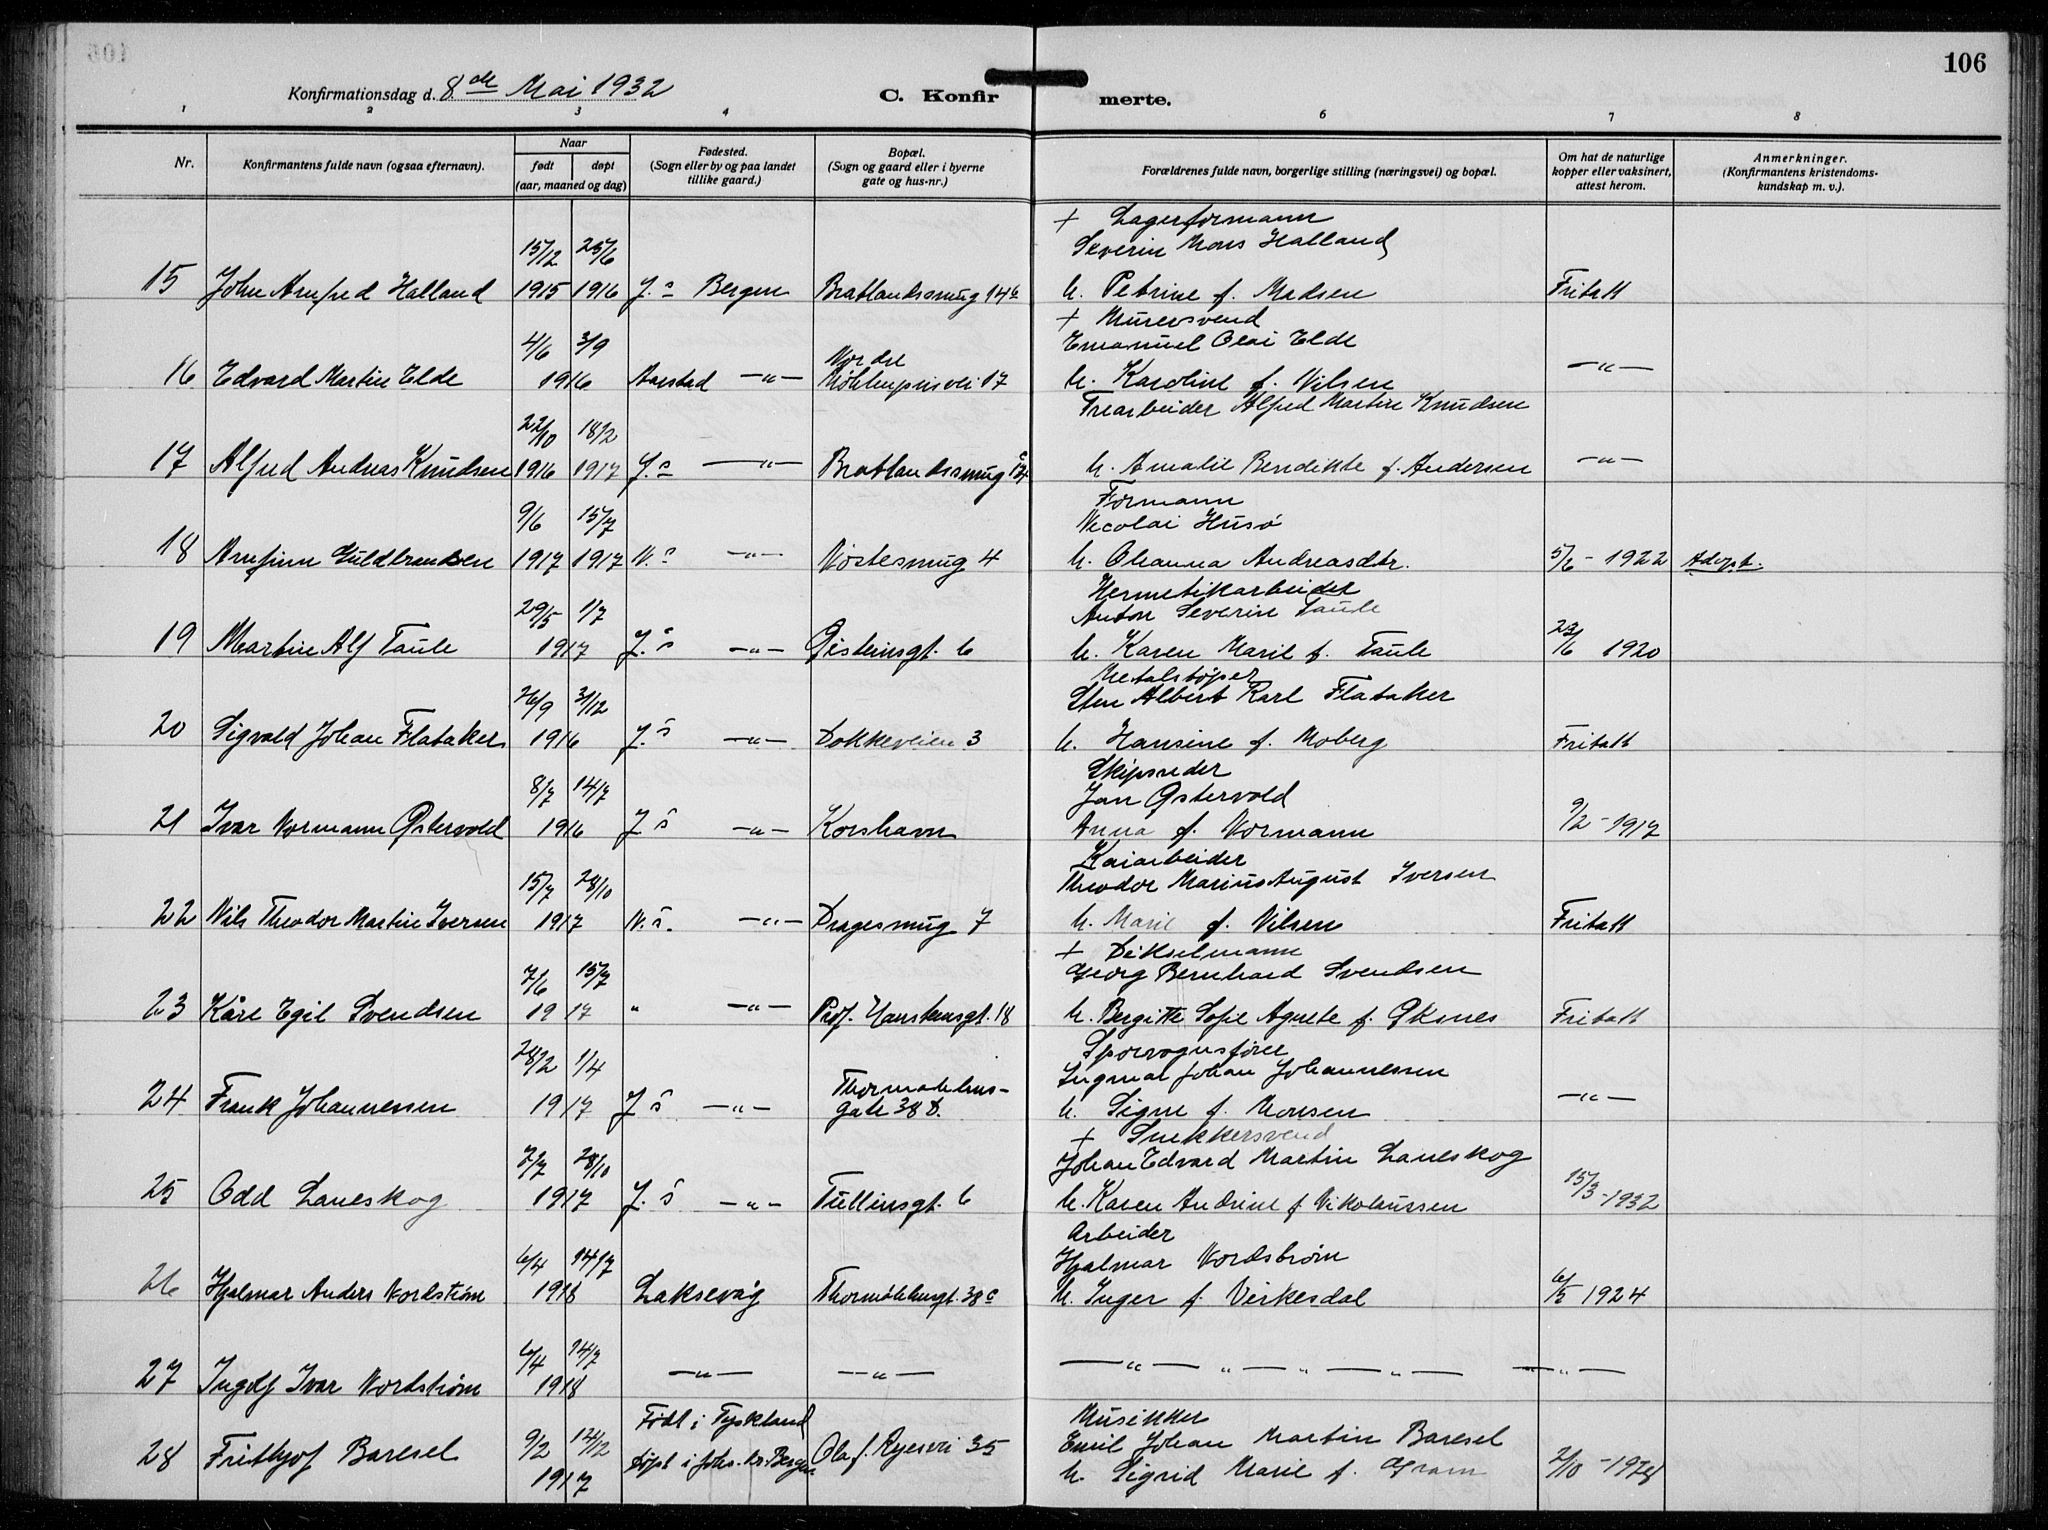 106
Konfirmationsdag d. 8de Mai 1932
C. Konfir merte.
1 2 3 4 6 7 8
Nr.
Konfirmantens fulde navn (ogsaa efternavn).
Naar
født døpt
(aar, maaned og dag)
Fødested.
(Sogn eller by og paa landet
tillike gaard.)
Bopæl.
(Sogn og gaard eller i byerne
gate og hus-nr.)
Forældrenes fulde navn, borgerlige stilling (næringsvei) og bopæl.
Om hat de naturlige
kopper eller vaksinert,
attest herom.
Anmerkninger.
(Konfirmantens kristendoms-
kundskap m. v.).
+ Lagerformann
15/12 25/6 Severin Mons Halland
15 John Arnfred Halland 1915 1916 J.s Bergen Bratlandssmug 14b h. Petrine f. Madsen Fritatt
+ Murersvend
4/6 3/9 Nordre Emanuel Olai Elde
16 Edvard Martin Elde 1916 Aarstad —"— Møhlenprisvei 17 h. Karoline f. Nilsen —"—
22/10 18/2 Trearbeider Alfred Martin Knudsen
17 Alfred Andreas Knudsen 1916 1917 J.s —"— Bratlandssmug h. Amalie Bendikte f. Andersen —"—
Formann
9/6 15/7 Nicolai Husø
18 Arnfinn Guldbrandsen 1917 1917 N.s —"— Nøstesmug 4 h. Oleanna Andreasdtr. 5/6 - 1922 Adopt.
Hermetikarbeider
29/5 1/7 Anton Severin Taule
19 Martin Alf Taule 1917 J.s —"— Øisteinsgt. 6 h. Karen Marie f. Taule 23/6 1920
Metalstøper
26/9 31/12 Sten Albert Karl Flataker
20 Sigvald Johan Flataker 1916 J.s —"— Dokkeveien 3 h. Hansine f. Moberg Fritatt
Skipsreder
8/7 14/7 Jan Østervold
21 Ivar Normann Østervold 1916 J.s —"— Korshavn Anna f. Normann 9/2 - 1917
Kaiarbeider
15/7 28/10 Theodor Marius August Iversen
22 Nils Theodor Martin Iversen 1917 N.s. —"— Dragesmug 7 h. Marie f. Nilsen Fritatt
+ Dikselmann
7/6 15/7 Georg Bernhard Svendsen
23 Kåre Egil Svendsen 1917 " —"— Prof. Hansteensgt. 18 h. Bergitte Sofie Agnete f. Øksnes Fritatt
Sporvognsfører
28/2 1/4 Thormøhlens- Ingmar Johan Johannessen
24 Frank Johannessen 1917 J.s —"— gate 38 D. h. Signe f. Monsen —"—
+ Snekkersvend
7/7 28/10 Johan Edvard Martin Laneskog
25 Odd Laneskog 1917 J.s —"— Tullinsgt. 6 h. Karen Andrine f. Nikolaussen 15/3 - 1932
Arbeider
6/4 14/7 Hjalmar Nordstrøm
26 Hjalmar Anders Nordstrøm 1918 Laksevåg Thormøhlensgt. 38c h. Inger f. Virkesdal 6/5 1924
6/4 14/7
27 Ingolf Ivar Nordstrøm 1918 —"— —"— —"— " — " — " — —"—
Født i Tyskland Musikker
9/2 12/12 Emil Johan Martin Baresel
28 Frithjof Baresel 1917 døpt i Johs. kr. Bergen Olaf Ryesvei 35 h. Sigrid Marie f. Gram 2/10 - 1928